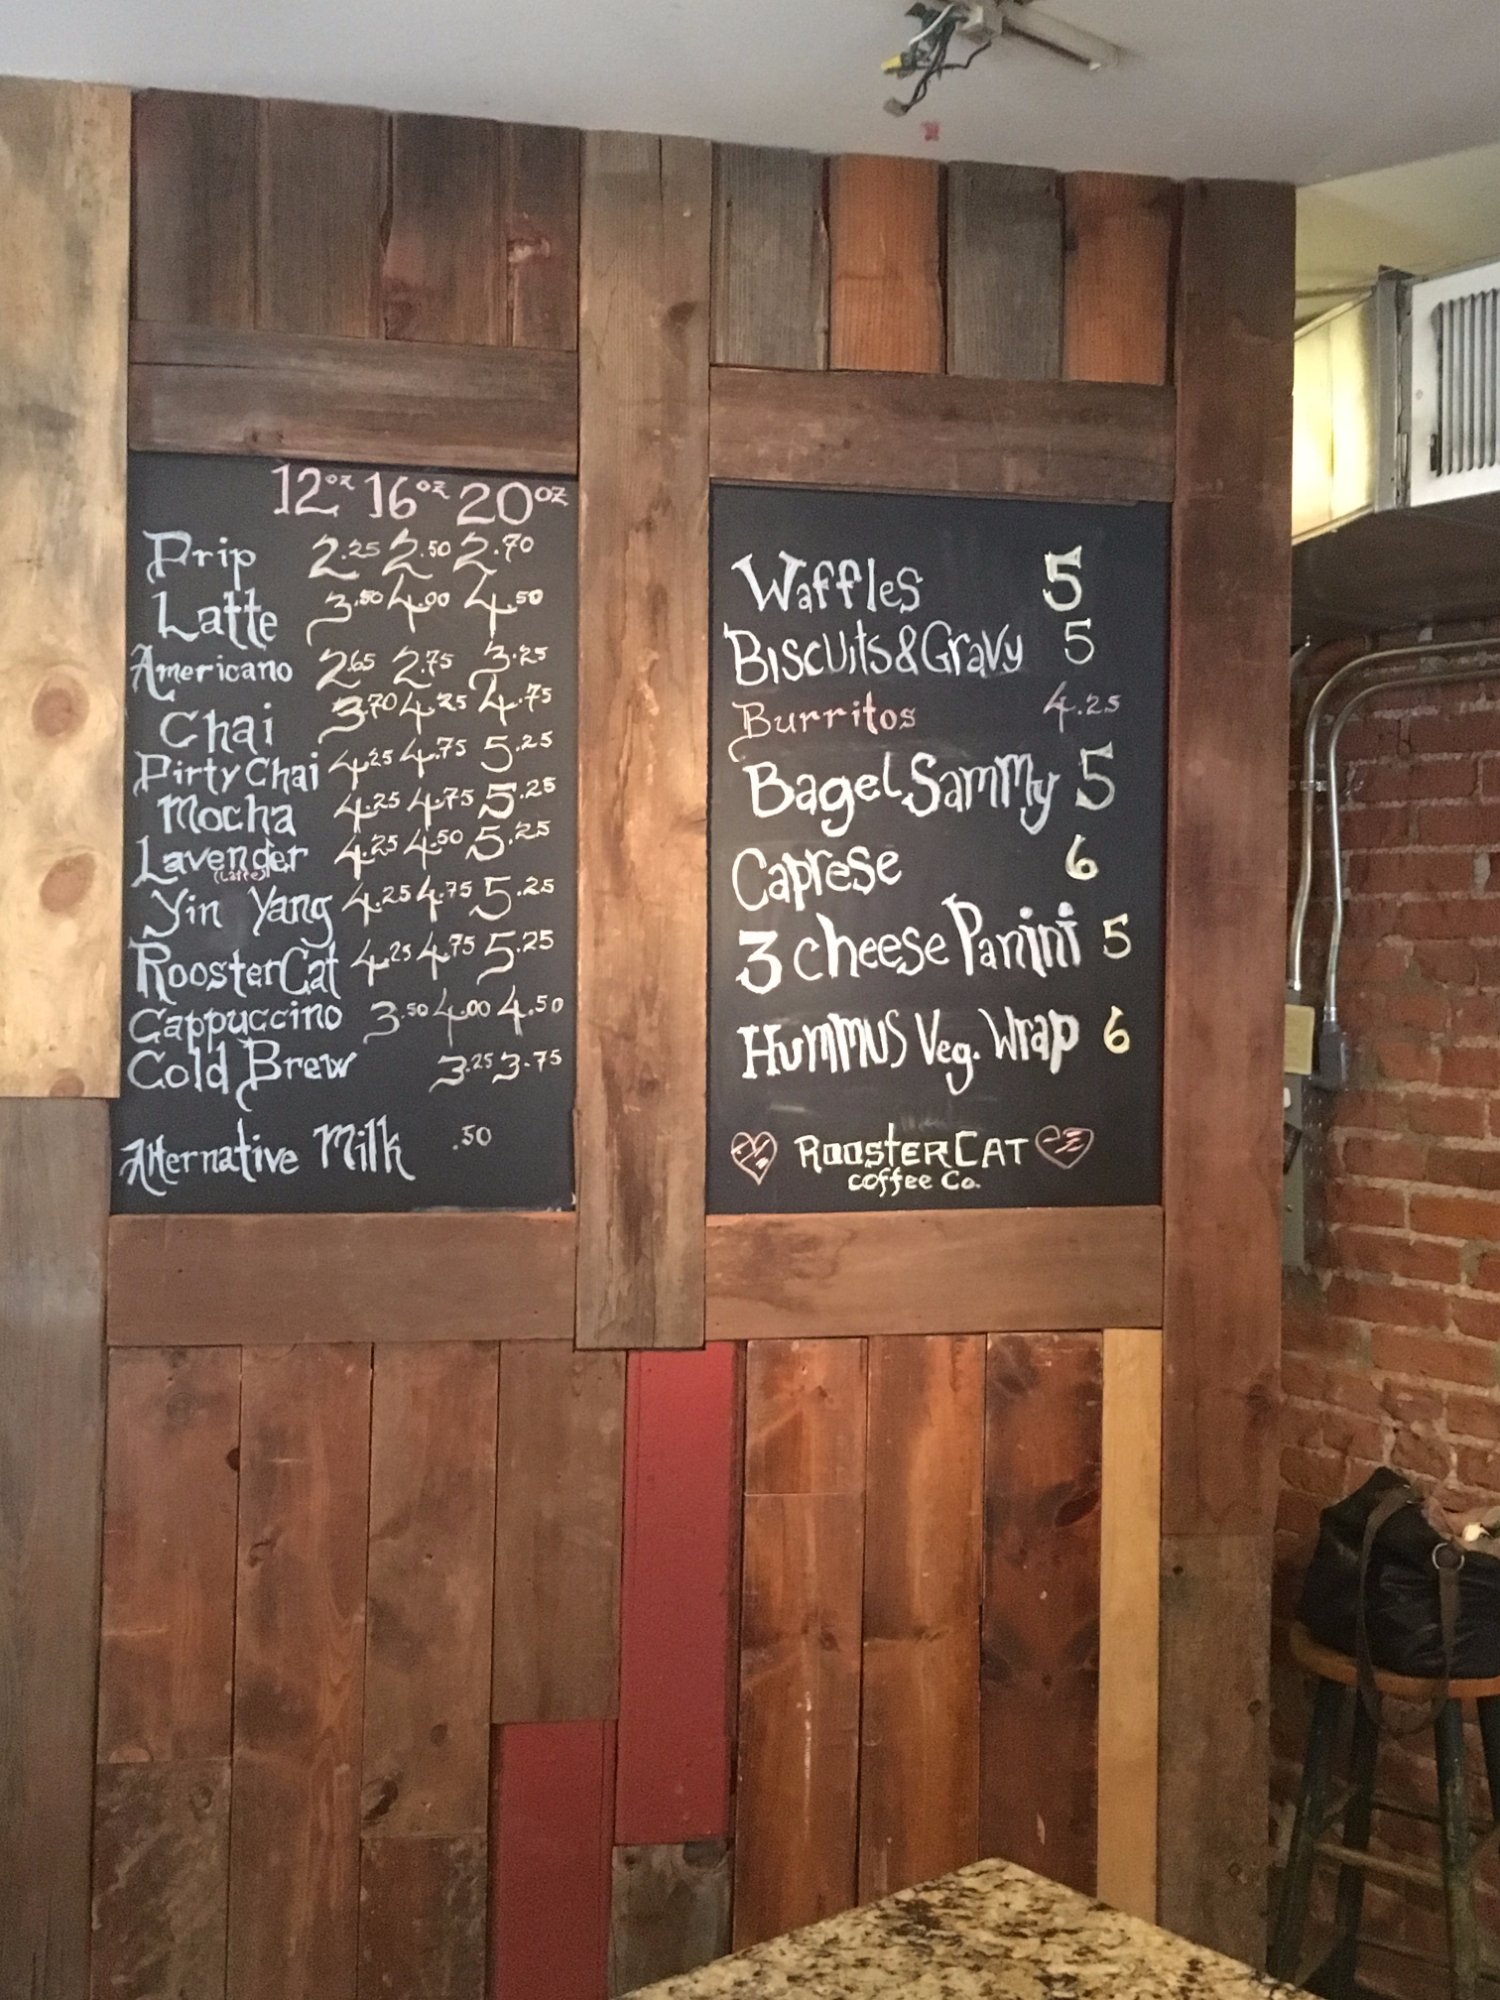 12oz 16oz 20oz
Drip 2.25 2.50 2.70
Latte 3.50 4.00 4.50
Americano 2.65 2.75 3.25
Chai 3.70 4.25 4.75
Dirty Chai 4.25 4.75 5.25
Mocha 4.25 4.75 5.25
Lavender 4.25 4.50 5.25
(Latte)
Yin Yang 4.25 4.75 5.25
RoosterCat 4.25 4.75 5.25
Cappuccino 3.50 4.00 4.50
Cold Brew 3.25 3.75
Alternative Milk .50
Waffles 5
Biscuits & Gravy 5
Burritos 4.25
Bagel Sammy 5
Caprese 6
3 Cheese Panini 5
Hummus Veg. Wrap 6
ROOSTERCAT
Coffee Co.